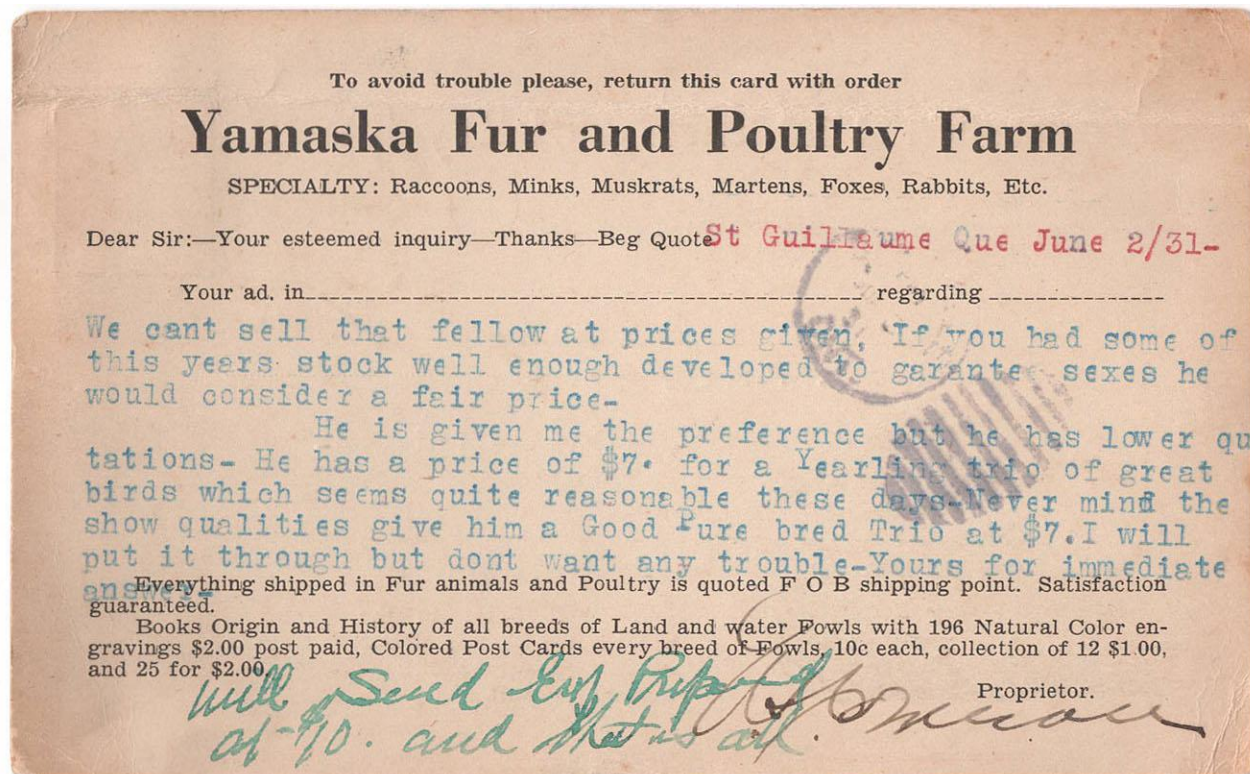 To avoid trouble please, return this card with order
Yamaska Fur and Poultry Farm
SPECIALTY: Raccoons, Minks, Muskrats, Martens, Foxes, Rabbits, Etc.
Dear Sir:—Your esteemed inquiry—Thanks—Beg Quote St Guillaume Que June 2/31-
Your ad. in regarding
We cant sell that fellow at prices given, If you had some of
this years stock well enough developed to garantee sexes he
would consider a fair price-
He is given me the preference but he has lower qu
tations- He has a price of $7. for a Yearling trio of great
birds which seems quite reasonable these days-Never mind the
show qualities give him a Good Pure bred Trio at $7.I will
put it through but dont want any trouble-Yours for immediate
answer-
Everything shipped in Fur animals and Poultry is quoted F O B shipping point. Satisfaction
guaranteed.
Books Origin and History of all breeds of Land and water Fowls with 196 Natural Color en-
gravings $2.00 post paid, Colored Post Cards every breed of Fowls, 10c each, collection of 12 $1.00,
and 25 for $2.00.
Proprietor.
will Send
and that is all.